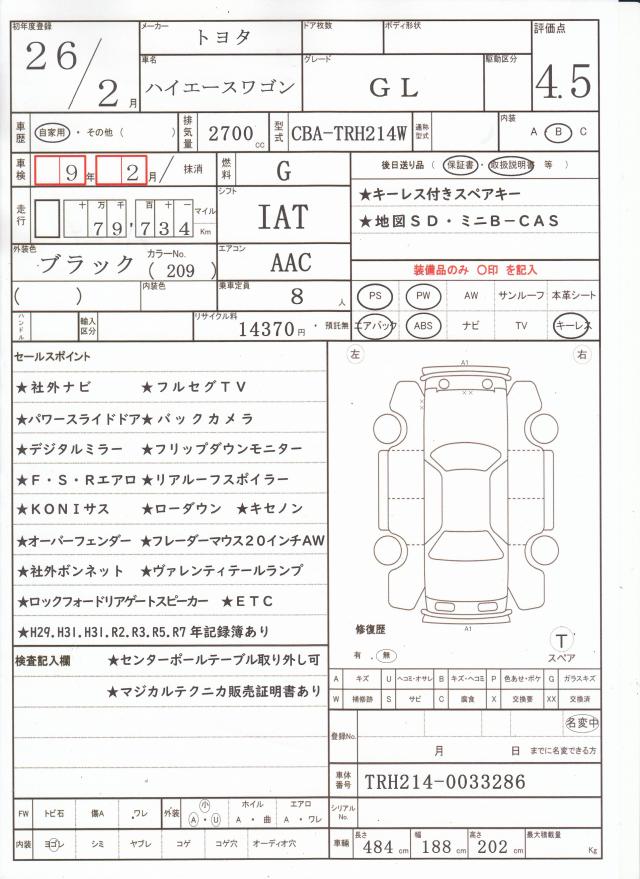 初年度登録 26/2月 メーカー トヨタ ドア枚数 ボディ形状 評価点 4.5
車名 ハイエースワゴン グレード GL 駆動区分
車歴 自家用・その他( ) 排気量 2700cc 型式 CBA-TRH214W 通称型式 内装 A B C
車検 9年 2月/ 抹消 燃料 G 後日送り品(保証書・取扱説明書 等)
走行 十万千百十一 79,734 マイル Km シフト IAT
★キーレス付きスペアキー
★地図SD・ミニB-CAS
外装色 ブラック カラーNo.(209) エアコン AAC
装備品のみ 〇印 を記入
( ) 内装色 乗車定員 8人
PS PW AW サンルーフ 本革シート
ハンドル 輸入区分 リサイクル料 14370円・預託無
エアバック ABS ナビ TV キーレス
セールスポイント
★社外ナビ ★フルセグTV
★パワースライドドア★バックカメラ
★デジタルミラー ★フリップダウンモニター
★F・S・Rエアロ★リアルーフスポイラー
★KONIサス ★ローダウン ★キセノン
★オーバーフェンダー ★フレーダーマウス20インチAW
★社外ボンネット ★ヴァレンティテールランプ
★ロックフォードリアゲートスピーカー ★ETC
★H29.H31.H31.R2.R3.R5.R7 年記録簿あり
検査記入欄 ★センターポールテーブル取り外し可
★マジカルテクニカ販売証明書あり
左 右
A1
××
×
×
A1
修復歴
有・無
T
スペア
A キズ U ヘコミ・オサレ B キズ・ヘコミ P 色あせ・ボケ G ガラスキズ
W 補修跡 S サビ C 腐食 X 交換要 XX 交換済
登録No. 名変中
月 日 までに名変できる方
車体番号 TRH214-0033286
FW トビ石 傷A ワレ 外装 小 A・U ホイル A・曲 エアロ A・ワレ シリアルNo.
内装 ヨゴレ シミ ヤブレ コゲ コゲ穴 オーディオ穴 車輛 長さ 484cm 幅 188cm 高さ 202cm 最大積載量 Kg